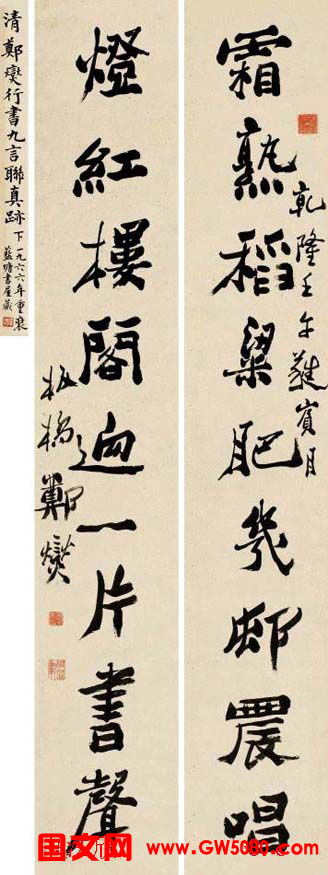 霜熟稻粱肥幾邨農唱
乾隆壬午蕤賓月
燈紅樓閣迥一片書聲
板橋鄭燮
清鄭燮行書九言聯真跡 下 一九六六年重裝
藍塘書屋藏
国文网 www.GW5080.com